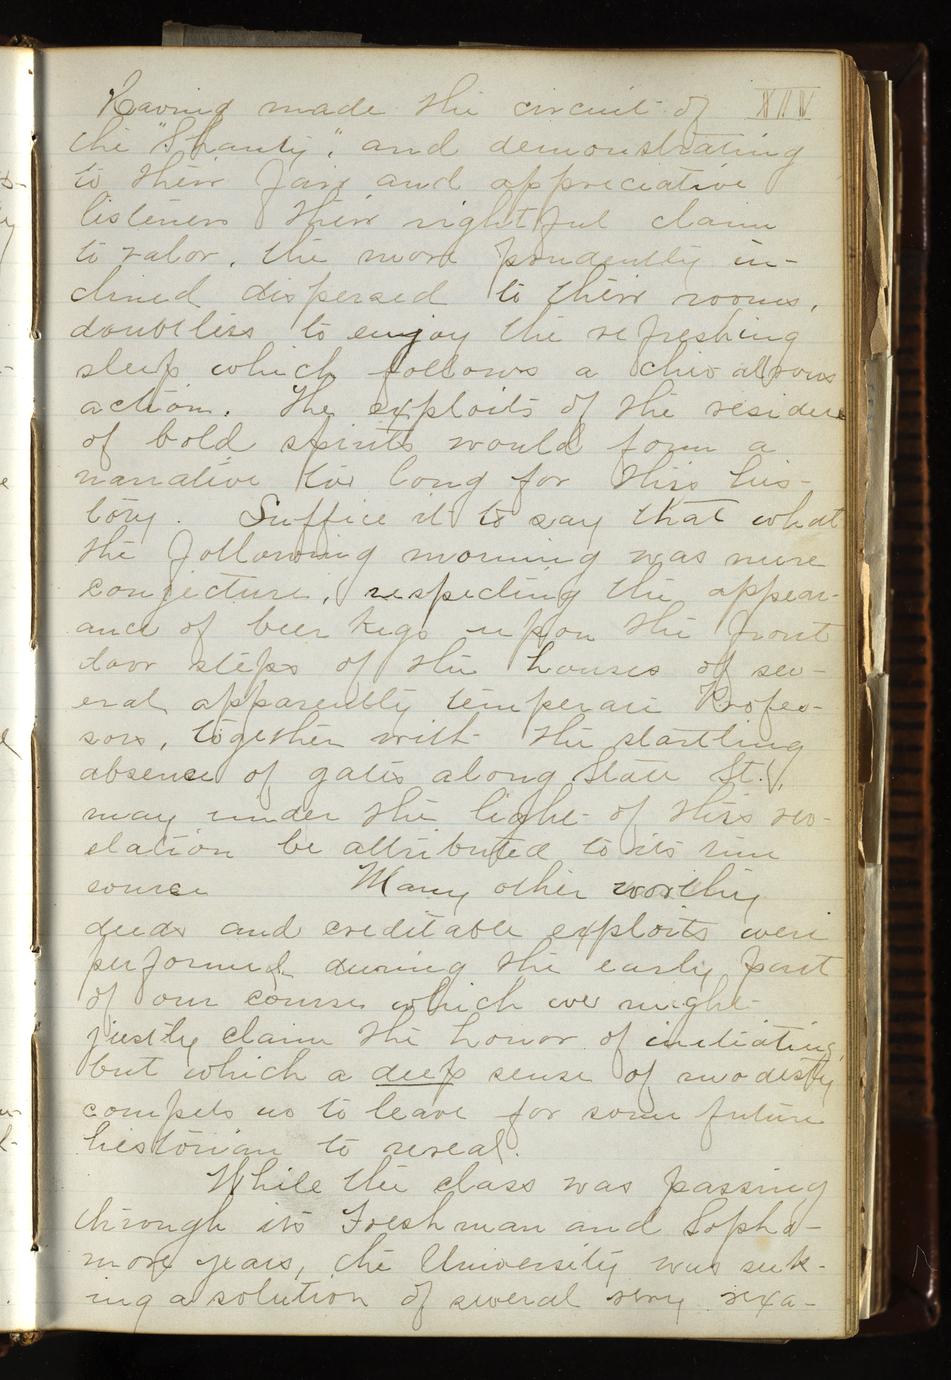 XIV
Having made the circuit of
the "Shanty", and demonstrating
to their fair and appreciative
listeners their rightful claim
to valor, the more prudently in-
clined dispersed to their rooms,
doubtless to enjoy the refreshing
sleep which follows a chivalrous
action. The exploits of the residue
of bold spirits would form a
narrative too long for this his-
tory. Suffice it to say that what
the following morning was mere
conjecture, respecting the appear-
ance of beer kegs upon the front
door steps of the houses of sev-
eral apparently temperate Profes-
sors, together with the startling
absence of gates along State St.,
may under the light of this rev-
elation be attributed to its true
source Many other worthy
deeds and creditable exploits were
performed during the early part
of our course which we might
justly claim the honor of initiating
but which a deep sense of modesty
compels us to leave for some future
historian to reveal.
While the class was passing
through its Freshman and Sopho-
more years, the University was seek-
ing a solution of several very vexa-